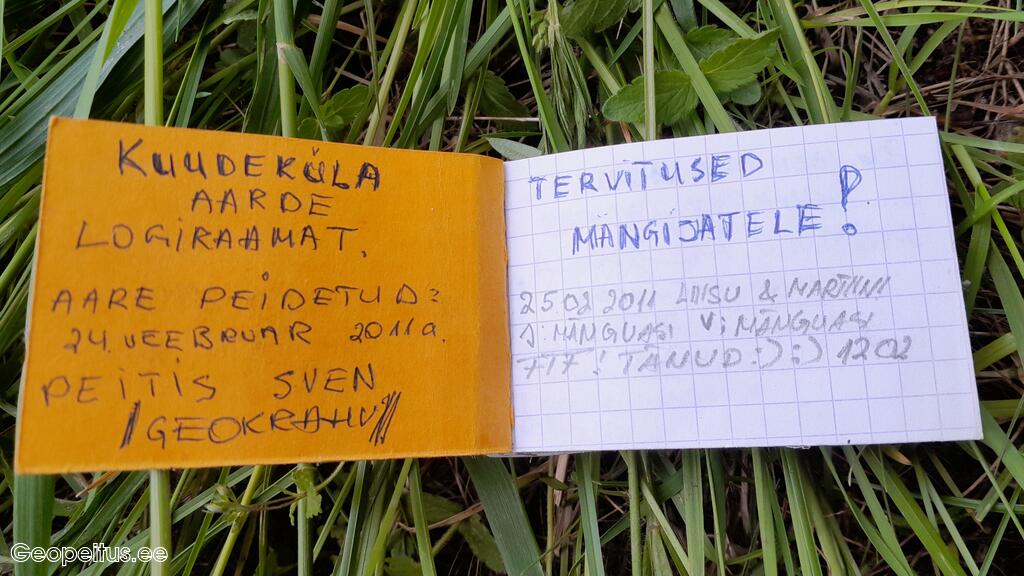 KUUDEKÜLA
AARDE
LOGIRAAMAT.
AARE PEIDETUD:
24. VEEBRUAR 2011a.
PEITIS SVEN
/GEOKRAHV//
TERVITUSED
MÄNGIJATELE!
25.02 2011 LIISU & MARTIIN
J: MÄNGUASI V: MÄNGUASI
FTF! TÄNUD:) :) 1202
Geopeitus.ee